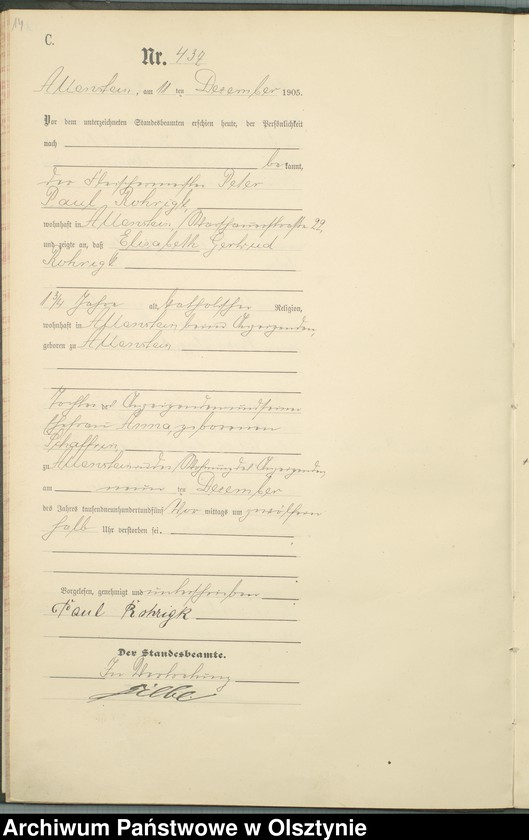 14
C.
Nr. 437
Allenstein, am 11 ten Dezember 1905.
Vor dem unterzeichneten Standesbeamten erschien heute, der Persönlichkeit
nach
bekannt,
der Peter
Paul Rohrigk,
wohnhaft in Allenstein, Warschauerstraße 22,
und zeigte an, daß Elisabeth Gertrud
Rohrigk
1 3/4 Jahre alt, katholischer Religion,
wohnhaft in Allenstein beim Anzeigenden,
geboren zu Allenstein
Tochter des Anzeigenden und seiner
Ehefrau Anna, geborenen
zu Allenstein in der Wohnung des Anzeigenden,
am neun ten Dezember
des Jahres tausendneunhundertundfünf Vor mittags um
halb Uhr verstorben sei.
Vorgelesen, genehmigt und unterschrieben
Paul Rohrigk
Der Standesbeamte.
In Vertretung
Archiwum Państwowe w Olsztynie